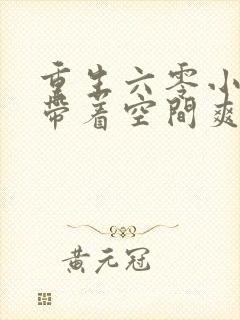 重生六零小
带着空间爽
黄元冠